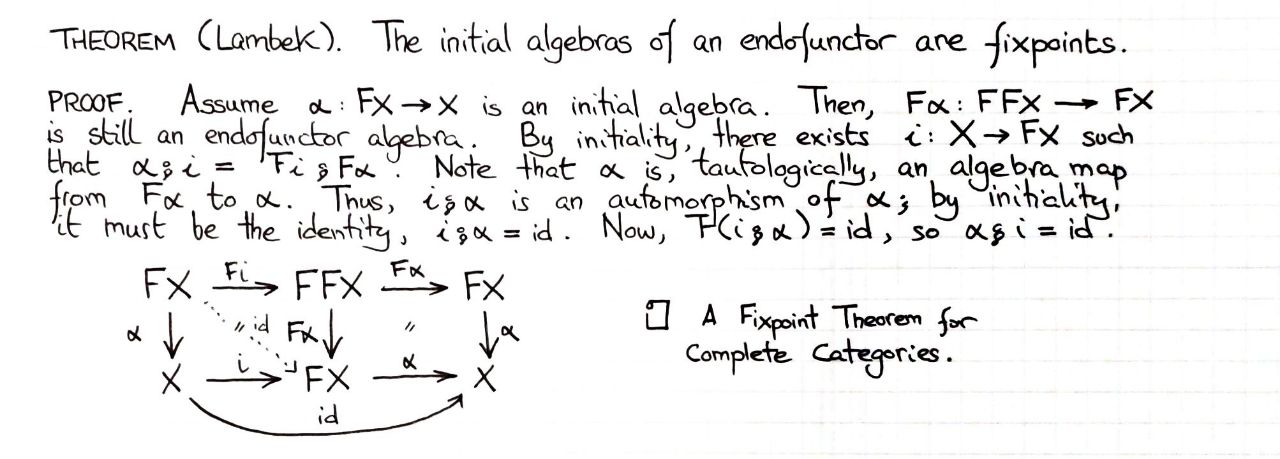 THEOREM (Lambek). The initial algebras of an endofunctor are fixpoints.
PROOF. Assume α : FX → X is an initial algebra. Then, Fα : FFX → FX
is still an endofunctor algebra. By initiality, there exists i : X → FX such
that α ⨾ i = Fi ⨾ Fα. Note that α is, tautologically, an algebra map
from Fα to α. Thus, i ⨾ α is an automorphism of α; by initiality,
it must be the identity, i ⨾ α = id. Now, F(i ⨾ α) = id, so α ⨾ i = id.
FX Fi → FFX Fα → FX
α ↓ " id Fα ↓ " ↓ α
X i → FX α → X
id
□ A Fixpoint Theorem for
Complete Categories.